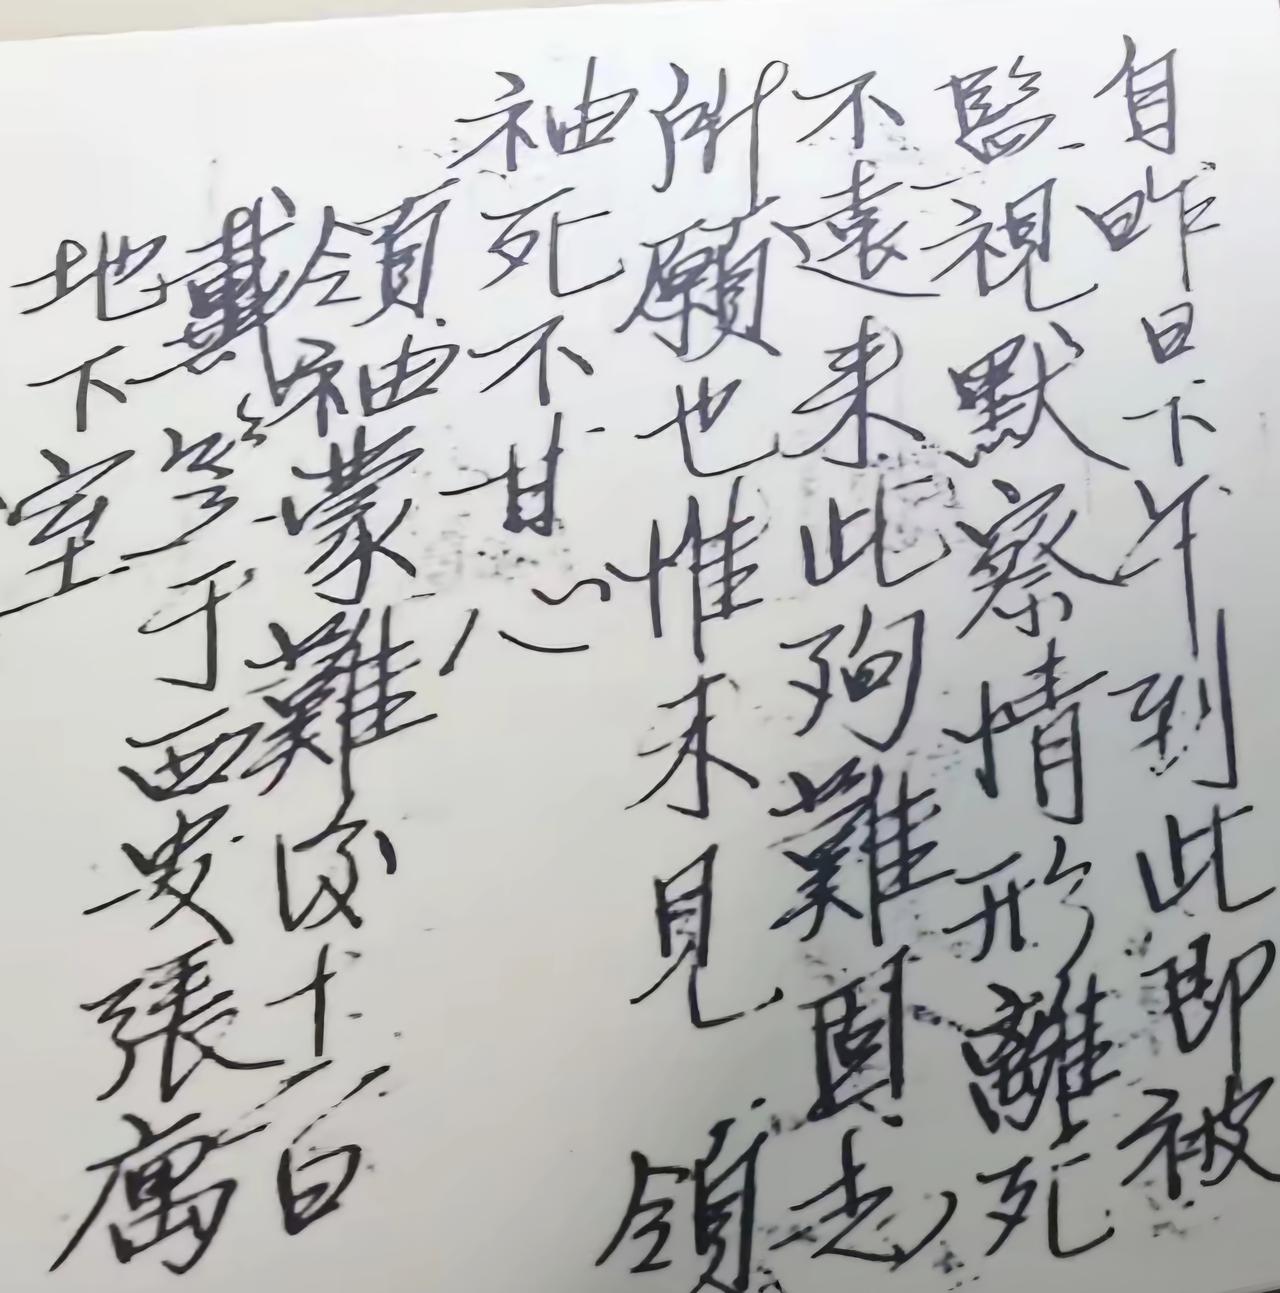 自昨日下午到此即被
監視默察情形離死
不遠来此殉難固志
所願也惟未見領
袖死不甘心
領袖蒙難後十二日
戴笠于西安張寓
地下室